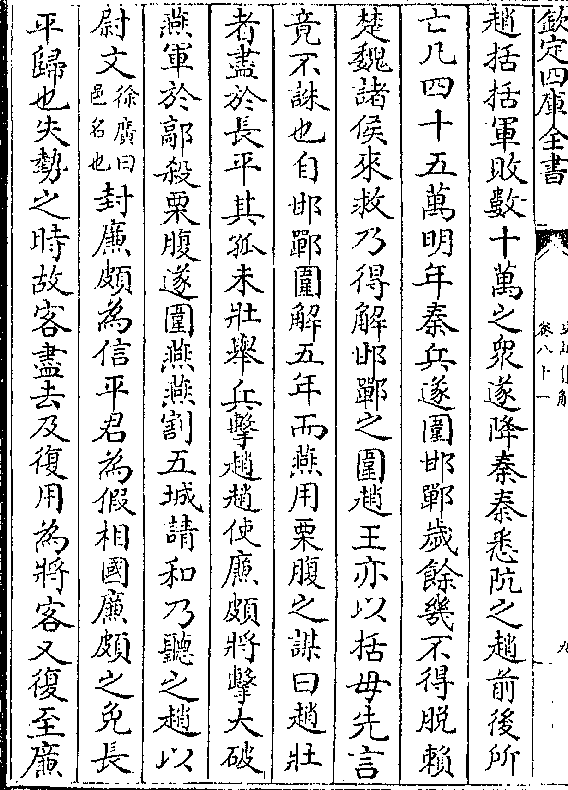 欽定四庫全書
卷八十一
九
趙括括軍敗數十萬之衆遂降秦秦悉阬之趙前後所
亡凡四十五萬明年秦兵遂圍邯鄲歲餘幾不得脫賴
楚魏諸侯來救乃得解邯鄲之圍趙王亦以括母先言
竟不誅也自邯鄲圍解五年而燕用栗腹之謀曰趙壯
者盡於長平其孤未壯舉兵擊趙趙使廉頗將擊大破
燕軍於鄗殺栗腹遂圍燕燕割五城請和乃聽之趙以
尉文徐廣曰邑名也封廉頗為信平君為假相國廉頗之免長
平歸也失勢之時故客盡去及復用為將客又復至廉